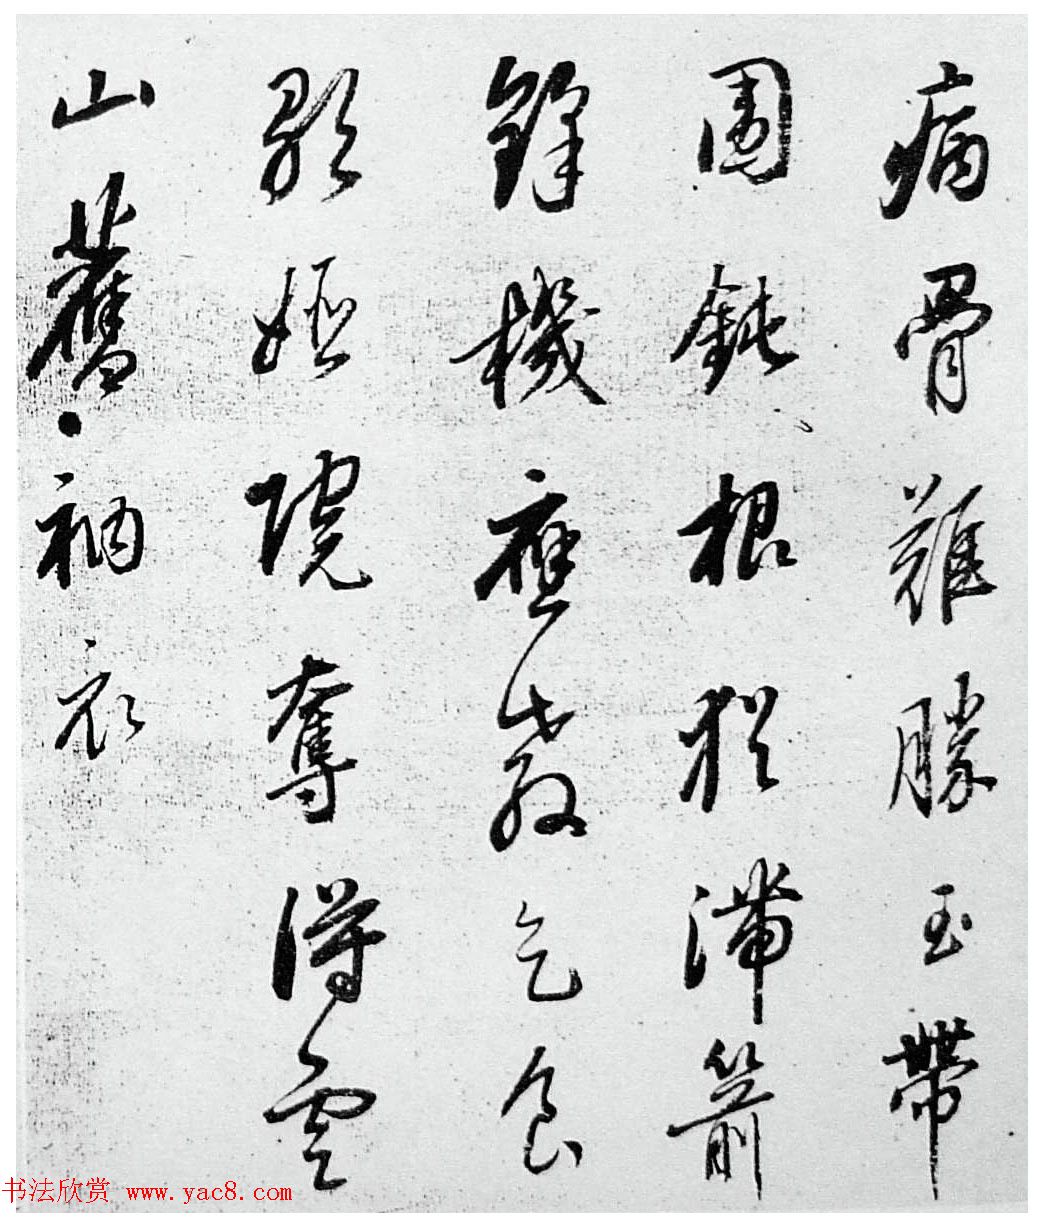 病骨難勝玉帶
圍鈍根猶滯箭
鋒機應教乞食
歌姬院奪得雲
山舊衲衣
书法欣赏 www.yac8.com